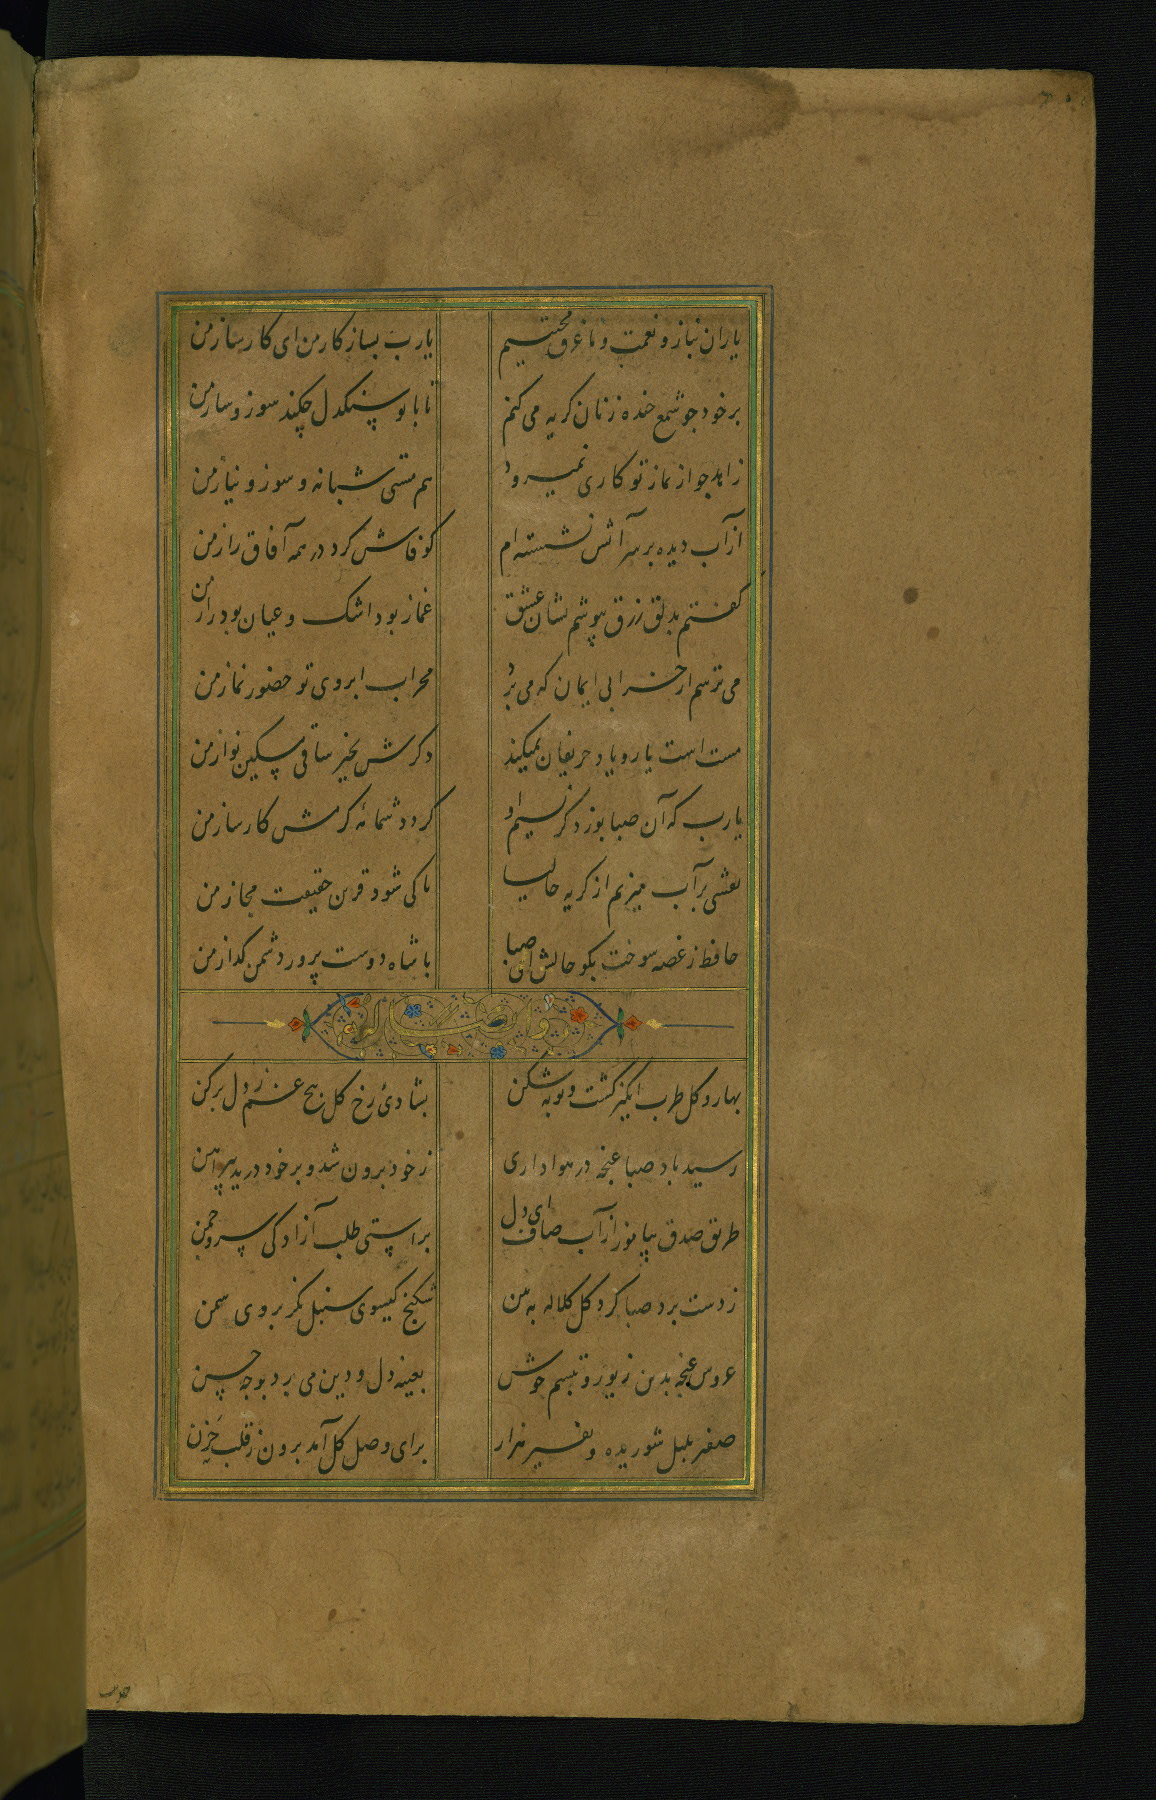 یاران بناز و نعمت و ما غرق محنتیم یارب بساز کار من ای کارساز من
بر خود چو شمع خنده زنان گریه می کنم تا با تو سنگدل چکند سوز و ساز من
زاهد چو از نماز تو کاری نمیرود هم مستی شبانه و سوز و نیاز من
از آب دیده بر سر آتش نشسته ام کو فاش کرد در همه آفاق راز من
گفتم بدلق زرق بپوشم نشان عشق غماز بود اشک و عیان بود راز من
می ترسم از خرابی ایمان که می برد محراب ابروی تو حضور نماز من
مست است یار و یاد حریفان نمیکند ذکرش بخیر ساقی مسکین نواز من
یارب که آن صبا بوزد کز نسیم او گردد شمامهٔ کرمش کارساز من
نقشی بر آب میزنم از گریه حالیا تا کی شود قرین حقیقت مجاز من
حافظ ز غصه سوخت بگو حالش ای صبا با شاه دوست پرور دشمن گداز من
بهار و گل طرب انگیز گشت و توبه شکن بشادی رخ گل بیخ غم ز دل برکن
رسید باد صبا غنچه در هواداری ز خود برون شد و بر خود درید پیراهن
طریق صدق بیاموز از آب صاف ای دل براستی طلب آزادگی ز سرو چمن
ز دست برد صبا گرد گل کلاله ببین شکنج گیسوی سنبل نگر بروی سمن
عروس غنچه بدین زیور و تبسم خوش بعینه دل و دین می برد بوجه حسن
صفیر بلبل شوریده و نفیر هزار برای وصل گل آمد برون ز قلب حزین